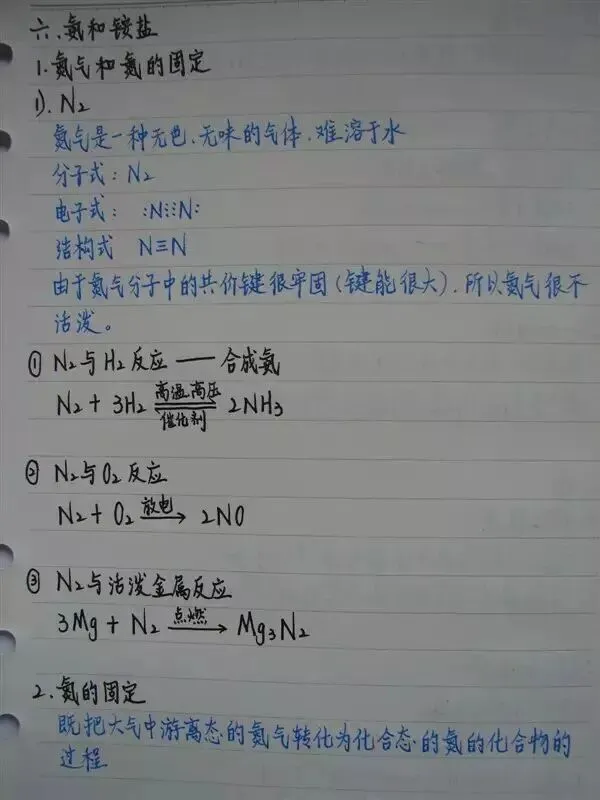 六、氨和铵盐
1.氮气和氮的固定
1). N₂
氮气是一种无色、无味的气体、难溶于水
分子式: N₂
电子式: :N⋮⋮N:
结构式 N≡N
由于氮气分子中的共价键很牢固(键能很大), 所以氮气很不
活泼。
① N₂与H₂反应 —— 合成氨
N₂ + 3H₂ ⇌ 2NH₃ (高温高压 / 催化剂)
② N₂与O₂反应
N₂ + O₂ —放电→ 2NO
③ N₂与活泼金属反应
3Mg + N₂ —点燃→ Mg₃N₂
2. 氮的固定
既把大气中游离态的氮气转化为化合态的氮的化合物的
过程